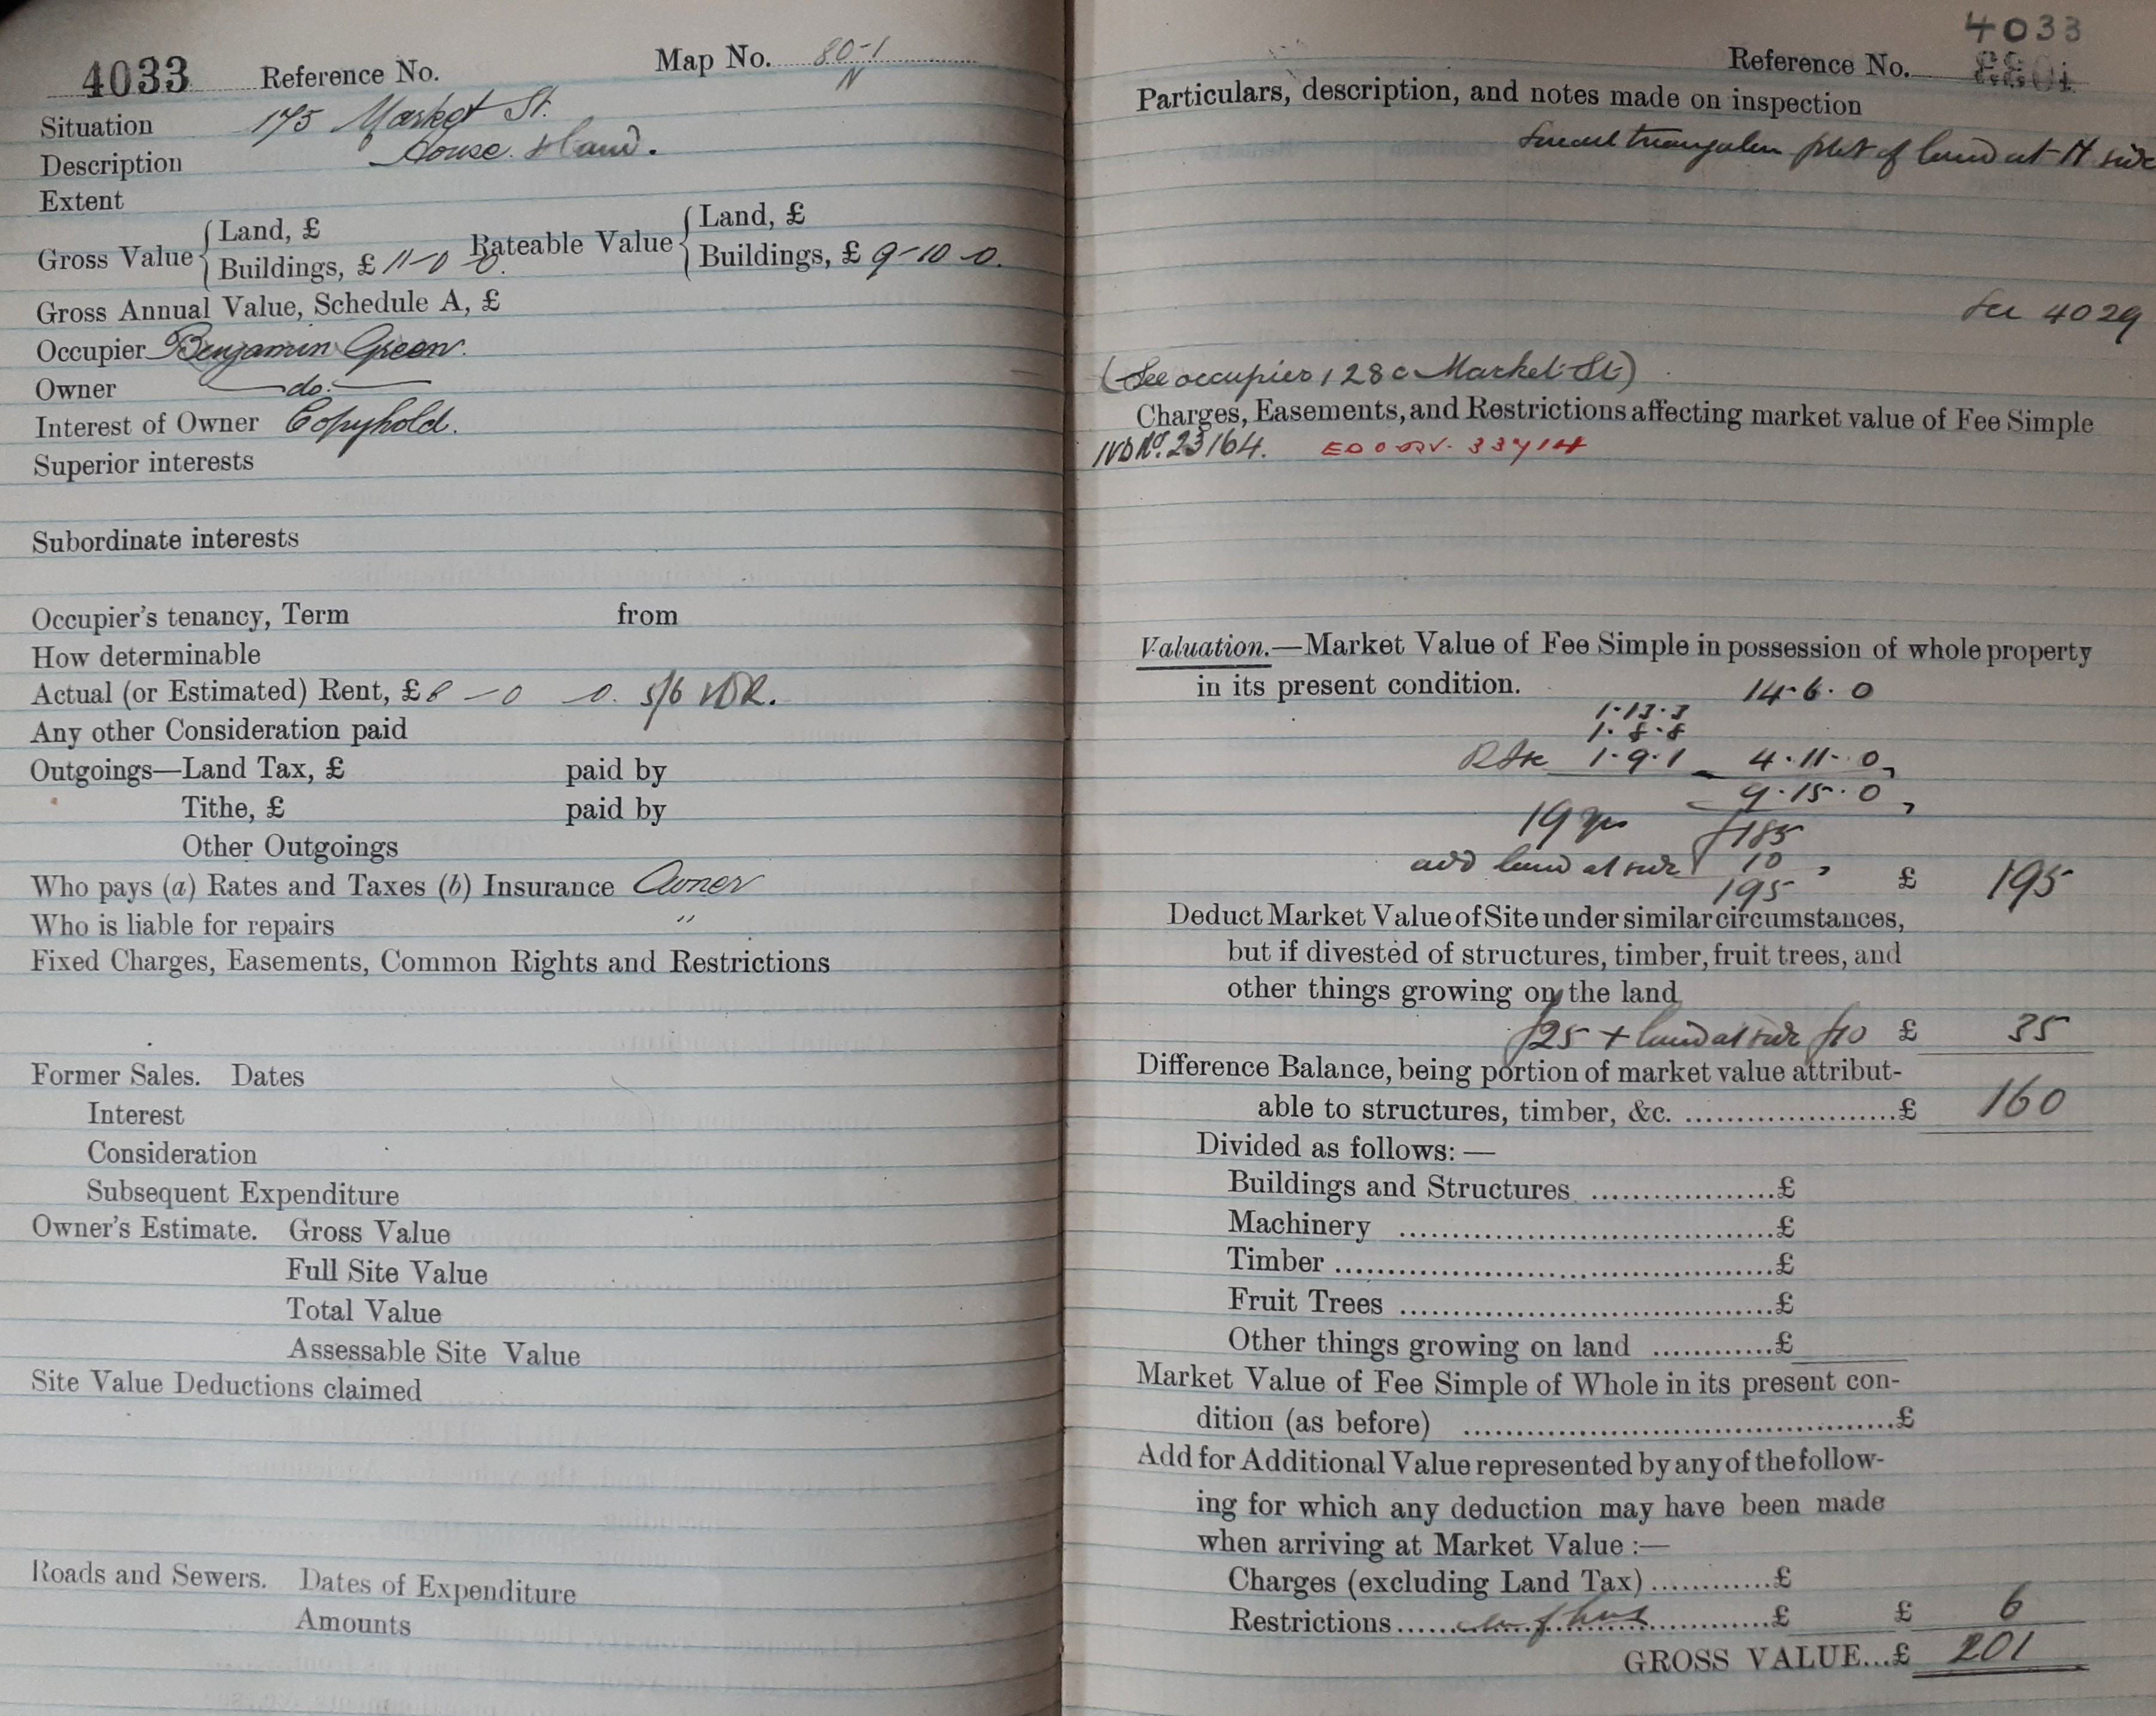 4033 Reference No. Map No. 80-1
N
Situation 175 Market St.
Description House & land.
Extent
Gross Value { Land, £
Buildings, £ 11-0-0. Rateable Value { Land, £
Buildings, £ 9-10-0.
Gross Annual Value, Schedule A, £
Occupier Benjamin Green.
Owner do.
Interest of Owner Copyhold.
Superior interests
Subordinate interests
Occupier's tenancy, Term from
How determinable
Actual (or Estimated) Rent, £ 8-0-0. 5/6
Any other Consideration paid
Outgoings—Land Tax, £ paid by
Tithe, £ paid by
Other Outgoings
Who pays (a) Rates and Taxes (b) Insurance Owner
Who is liable for repairs "
Fixed Charges, Easements, Common Rights and Restrictions
Former Sales. Dates
Interest
Consideration
Subsequent Expenditure
Owner's Estimate. Gross Value
Full Site Value
Total Value
Assessable Site Value
Site Value Deductions claimed
Roads and Sewers. Dates of Expenditure
Amounts
4033
Reference No.
Particulars, description, and notes made on inspection
Small triangular plot of land at N side
See 4029
(See occupier 128c Market St)
Charges, Easements, and Restrictions affecting market value of Fee Simple
IVD No. 23164.
Valuation.—Market Value of Fee Simple in possession of whole property
in its present condition. 14.6.0
1.13.3
1.8.8
1.9.1 4.11.0
9.15.0
19 yrs £185
add land at side 10
195 £ 195
Deduct Market Value of Site under similar circumstances,
but if divested of structures, timber, fruit trees, and
other things growing on the land
£25 + land at side £10 £ 35
Difference Balance, being portion of market value attribut-
able to structures, timber, &c. ....................£ 160
Divided as follows:—
Buildings and Structures ..................£
Machinery ......................................£
Timber ............................................£
Fruit Trees ......................................£
Other things growing on land ............£
Market Value of Fee Simple of Whole in its present con-
dition (as before) ............................................£
Add for Additional Value represented by any of the follow-
ing for which any deduction may have been made
when arriving at Market Value :—
Charges (excluding Land Tax) ............£
Restrictions ............£ £ 6
GROSS VALUE...£ 201